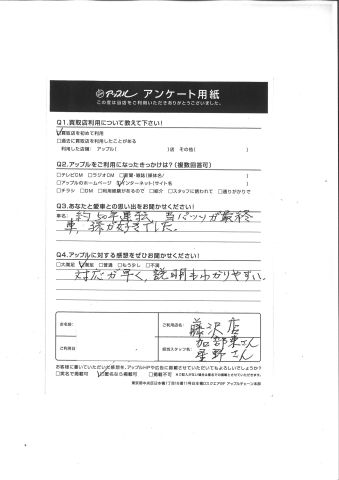 アップル アンケート用紙
この度は当店をご利用いただきありがとうございました。
Q1.買取店利用について教えて下さい!
☑買取店を初めて利用
□過去に買取店を利用したことがある
利用した店舗： アップル( )店 その他( )
Q2.アップルをご利用になったきっかけは?(複数回答可)
□テレビCM □ラジオCM □新聞・雑誌(媒体名/ )
□アップルのホームページ ☑インターネット(サイト名 )
□チラシ □DM □利用経験があるので □紹介 □スタッフに誘われて □通りがかりで
Q3.あなたと愛車との思い出をお聞かせください!
車名: 約50年運転、当パッソが最終
車、孫が好きでした。
Q4.アップルに対する感想をぜひお聞かせください!
□大満足 ☑満足 □普通 □もう少し □不満
対応が早く、説明もわかりやすい。
お名前: ご利用店名: 藤沢店
ご利用日 担当スタッフ名: 加部東さん
星野さん
お客様に書いていただいた感想を、アップルHPや広告に掲載させていただいてもよろしいでしょうか?
□実名で掲載可 ☑匿名なら掲載可 □掲載不可